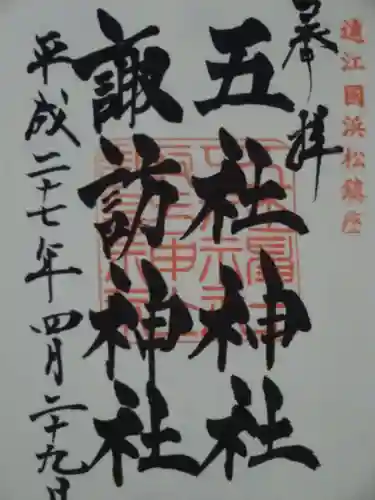 遠江國浜松鎮座
奉拝
五社神社
諏訪神社
平成二十七年四月二十九日